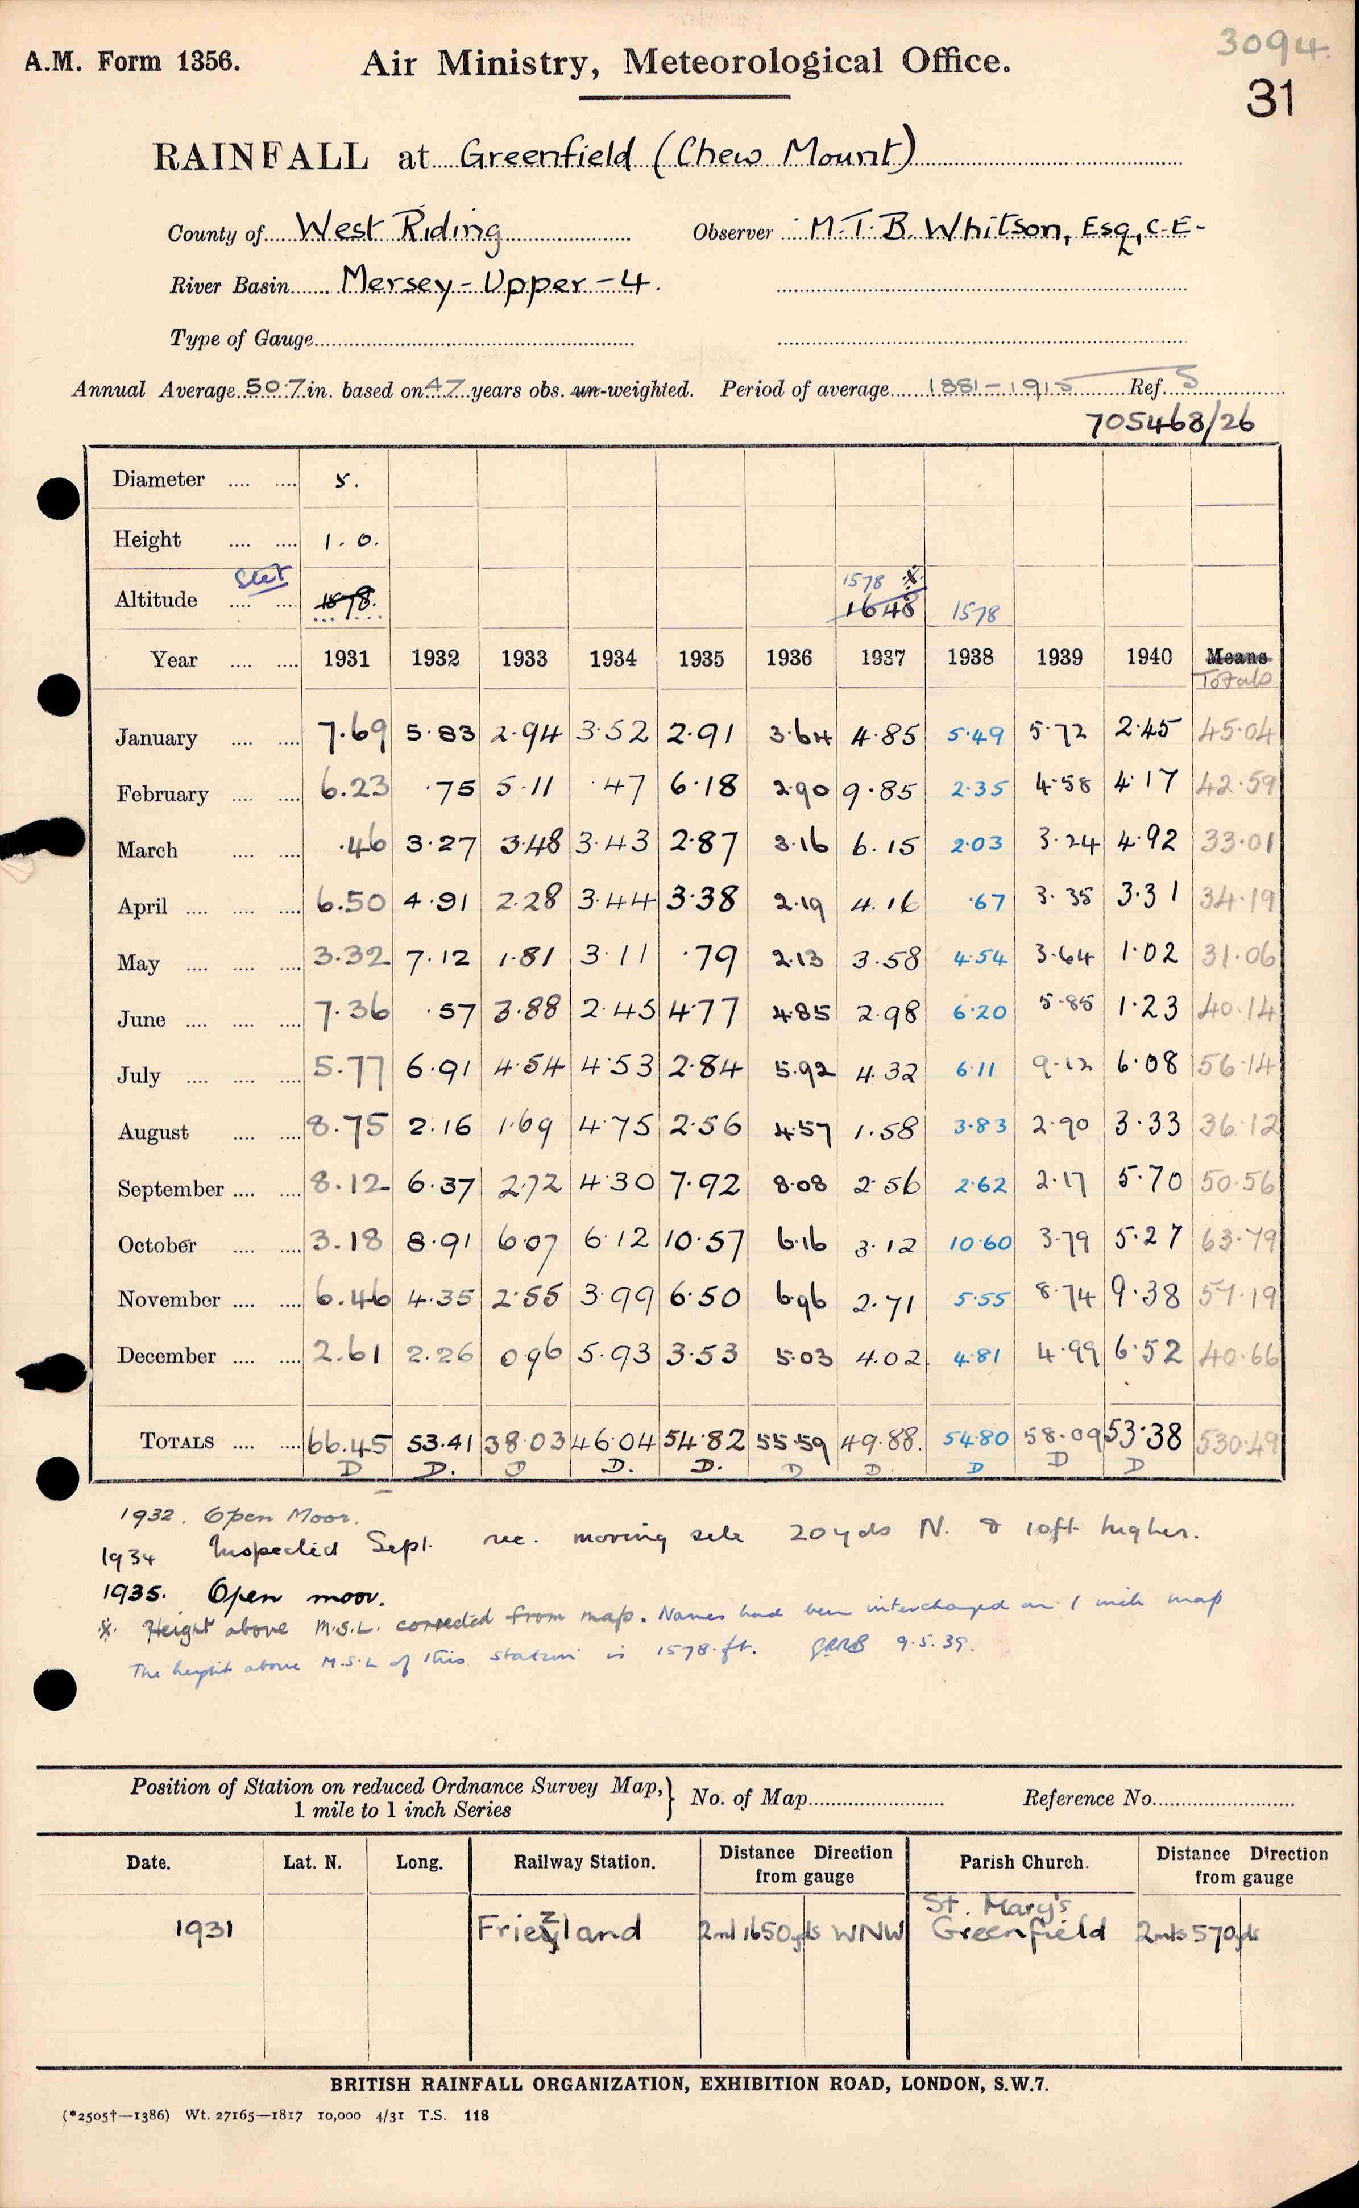 3094.
A.M. Form 1356.
Air Ministry, Meteorological Office.
31
RAINFALL at Greenfield (Chew Mount)
County of West Riding Observer M.T.B. Whitson, Esq, C.E-
River Basin Mersey - Upper - 4.
Type of Gauge
Annual Average 50.7 in. based on 47 years obs. un-weighted. Period of average 1881-1915 Ref. S
705468/26
Diameter 5.
Height 1. 0.
Altitude 1578. 1578 x 1648 1578
Year 1931 1932 1933 1934 1935 1936 1937 1938 1939 1940 Means Totals
January 7.69 5.83 2.94 3.52 2.91 3.64 4.85 5.49 5.72 2.45 45.04
February 6.23 .75 5.11 .47 6.18 2.90 9.85 2.35 4.58 4.17 42.59
March .46 3.27 3.48 3.43 2.87 3.16 6.15 2.03 3.24 4.92 33.01
April 6.50 4.91 2.28 3.44 3.38 2.19 4.16 .67 3.35 3.31 34.19
May 3.32 7.12 1.81 3.11 .79 2.13 3.58 4.54 3.64 1.02 31.06
June 7.36 .57 3.88 2.45 4.77 4.85 2.98 6.20 5.85 1.23 40.14
July 5.77 6.91 4.54 4.53 2.84 5.92 4.32 6.11 9.12 6.08 56.14
August 8.75 2.16 1.69 4.75 2.56 4.57 1.58 3.83 2.90 3.33 36.12
September 8.12 6.37 2.72 4.30 7.92 8.08 2.56 2.62 2.17 5.70 50.56
October 3.18 8.91 6.07 6.12 10.57 6.16 3.12 10.60 3.79 5.27 63.79
November 6.46 4.35 2.55 3.99 6.50 6.96 2.71 5.55 8.74 9.38 57.19
December 2.61 2.26 0.96 5.93 3.53 5.03 4.02 4.81 4.99 6.52 40.66
TOTALS 66.45 53.41 38.03 46.04 54.82 55.59 49.88. 54.80 58.09 53.38 530.49
D D. D D. D. D D. D D D
1932. Open Moor.
1934 Inspected Sept. rec. moving site 20 yds N. & 10ft higher.
1935. Open moor.
x. Height above M.S.L. corrected from map. Names had been interchanged on 1 inch map
The height above M.S.L of this station is 1578 ft. 9.5.39.
Position of Station on reduced Ordnance Survey Map, 1 mile to 1 inch Series } No. of Map Reference No.
Date. Lat. N. Long. Railway Station. Distance Direction from gauge Parish Church. Distance Direction from gauge
1931 Friezland 2ml 1650yds WNW St. Mary's Greenfield 2mls 570yds
BRITISH RAINFALL ORGANIZATION, EXHIBITION ROAD, LONDON, S.W.7.
(*2505†—1386) Wt. 27165—1817 10,000 4/31 T.S. 118